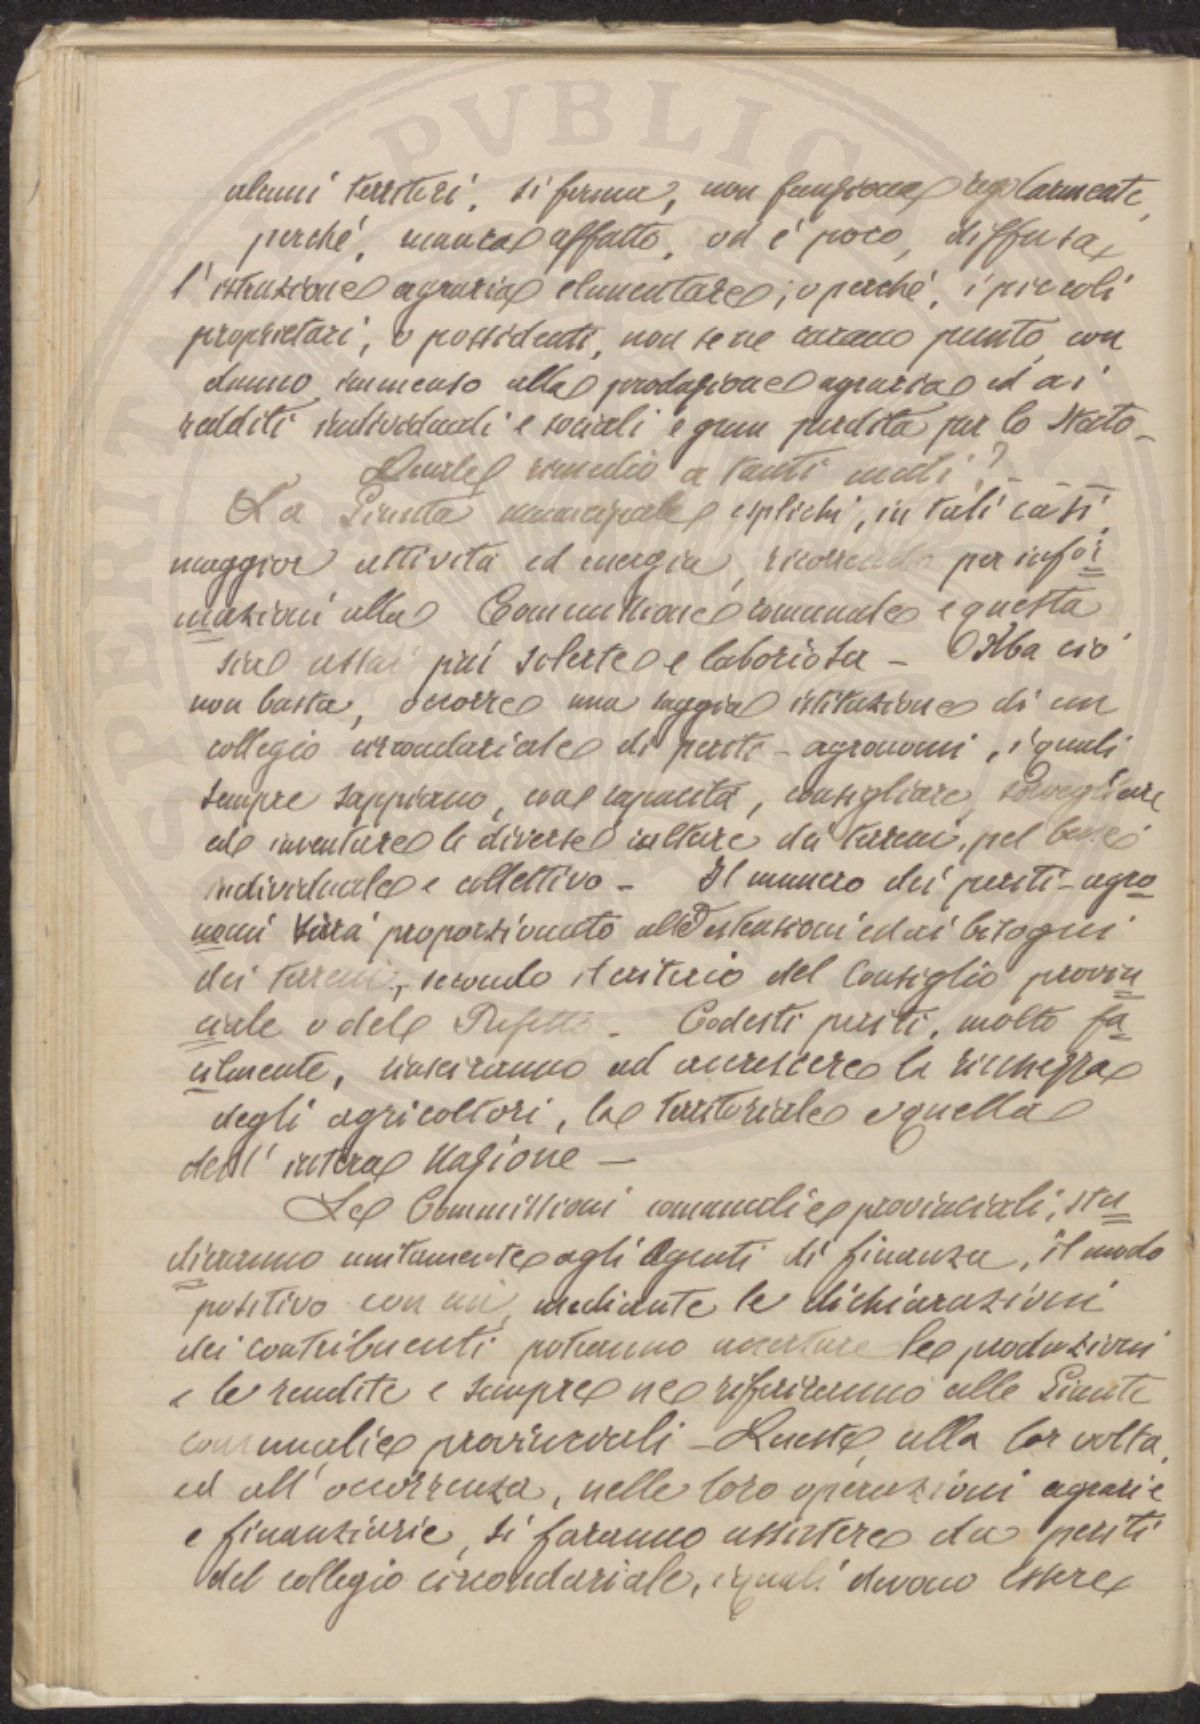 alcuni territori, si ferma, non funziona regolarmente,
perché, manca affatto, od è poco, diffusa,
l'istruzione agraria elementare; o perché, i piccoli
proprietari, o possidenti, non se ne curano punto, con
danno immenso alla produzione agraria ed ai
redditi individuali e sociali e gran perdita per lo Stato –
Quale rimedio a tanti mali? –
La Giunta municipale esplichi, in tali casi,
maggior attività ed energia, ricorrendo per infor
mazioni alla Commissione comunale e questa
sia assai più solerte e laboriosa – Ma ciò
non basta, occorre una saggia istituzione di un
collegio circondariale di periti-agronomi, i quali
sempre sappiano, con capacità, consigliare, sorvegliare
ed inventare le diverse culture dei terreni, pel bene
individuale e collettivo – Il numero dei periti-agro
nomi sarà proporzionato alle estensioni ed ai bisogni
dei terreni, secondo il criterio del Consiglio provin
ciale o del Prefetto – Codesti periti, molto fa
cilmente, riusciranno ad accrescere la ricchezza
degli agricoltori, la territoriale e quella
dell'intera Nazione –
Le Commissioni comunali e provinciali, stu
dieranno unitamente agli Agenti di finanza, il modo
positivo con cui, mediante le dichiarazioni
dei contribuenti potranno accertare le produzioni
e le rendite e sempre ne riferiranno alle Giunte
comunali e provinciali – Queste, alla lor volta,
ed all'occorrenza, nelle loro operazioni agrarie
e finanziarie, si faranno assistere da periti
del collegio circondariale, i quali devono essere
PERITA PVBLICA